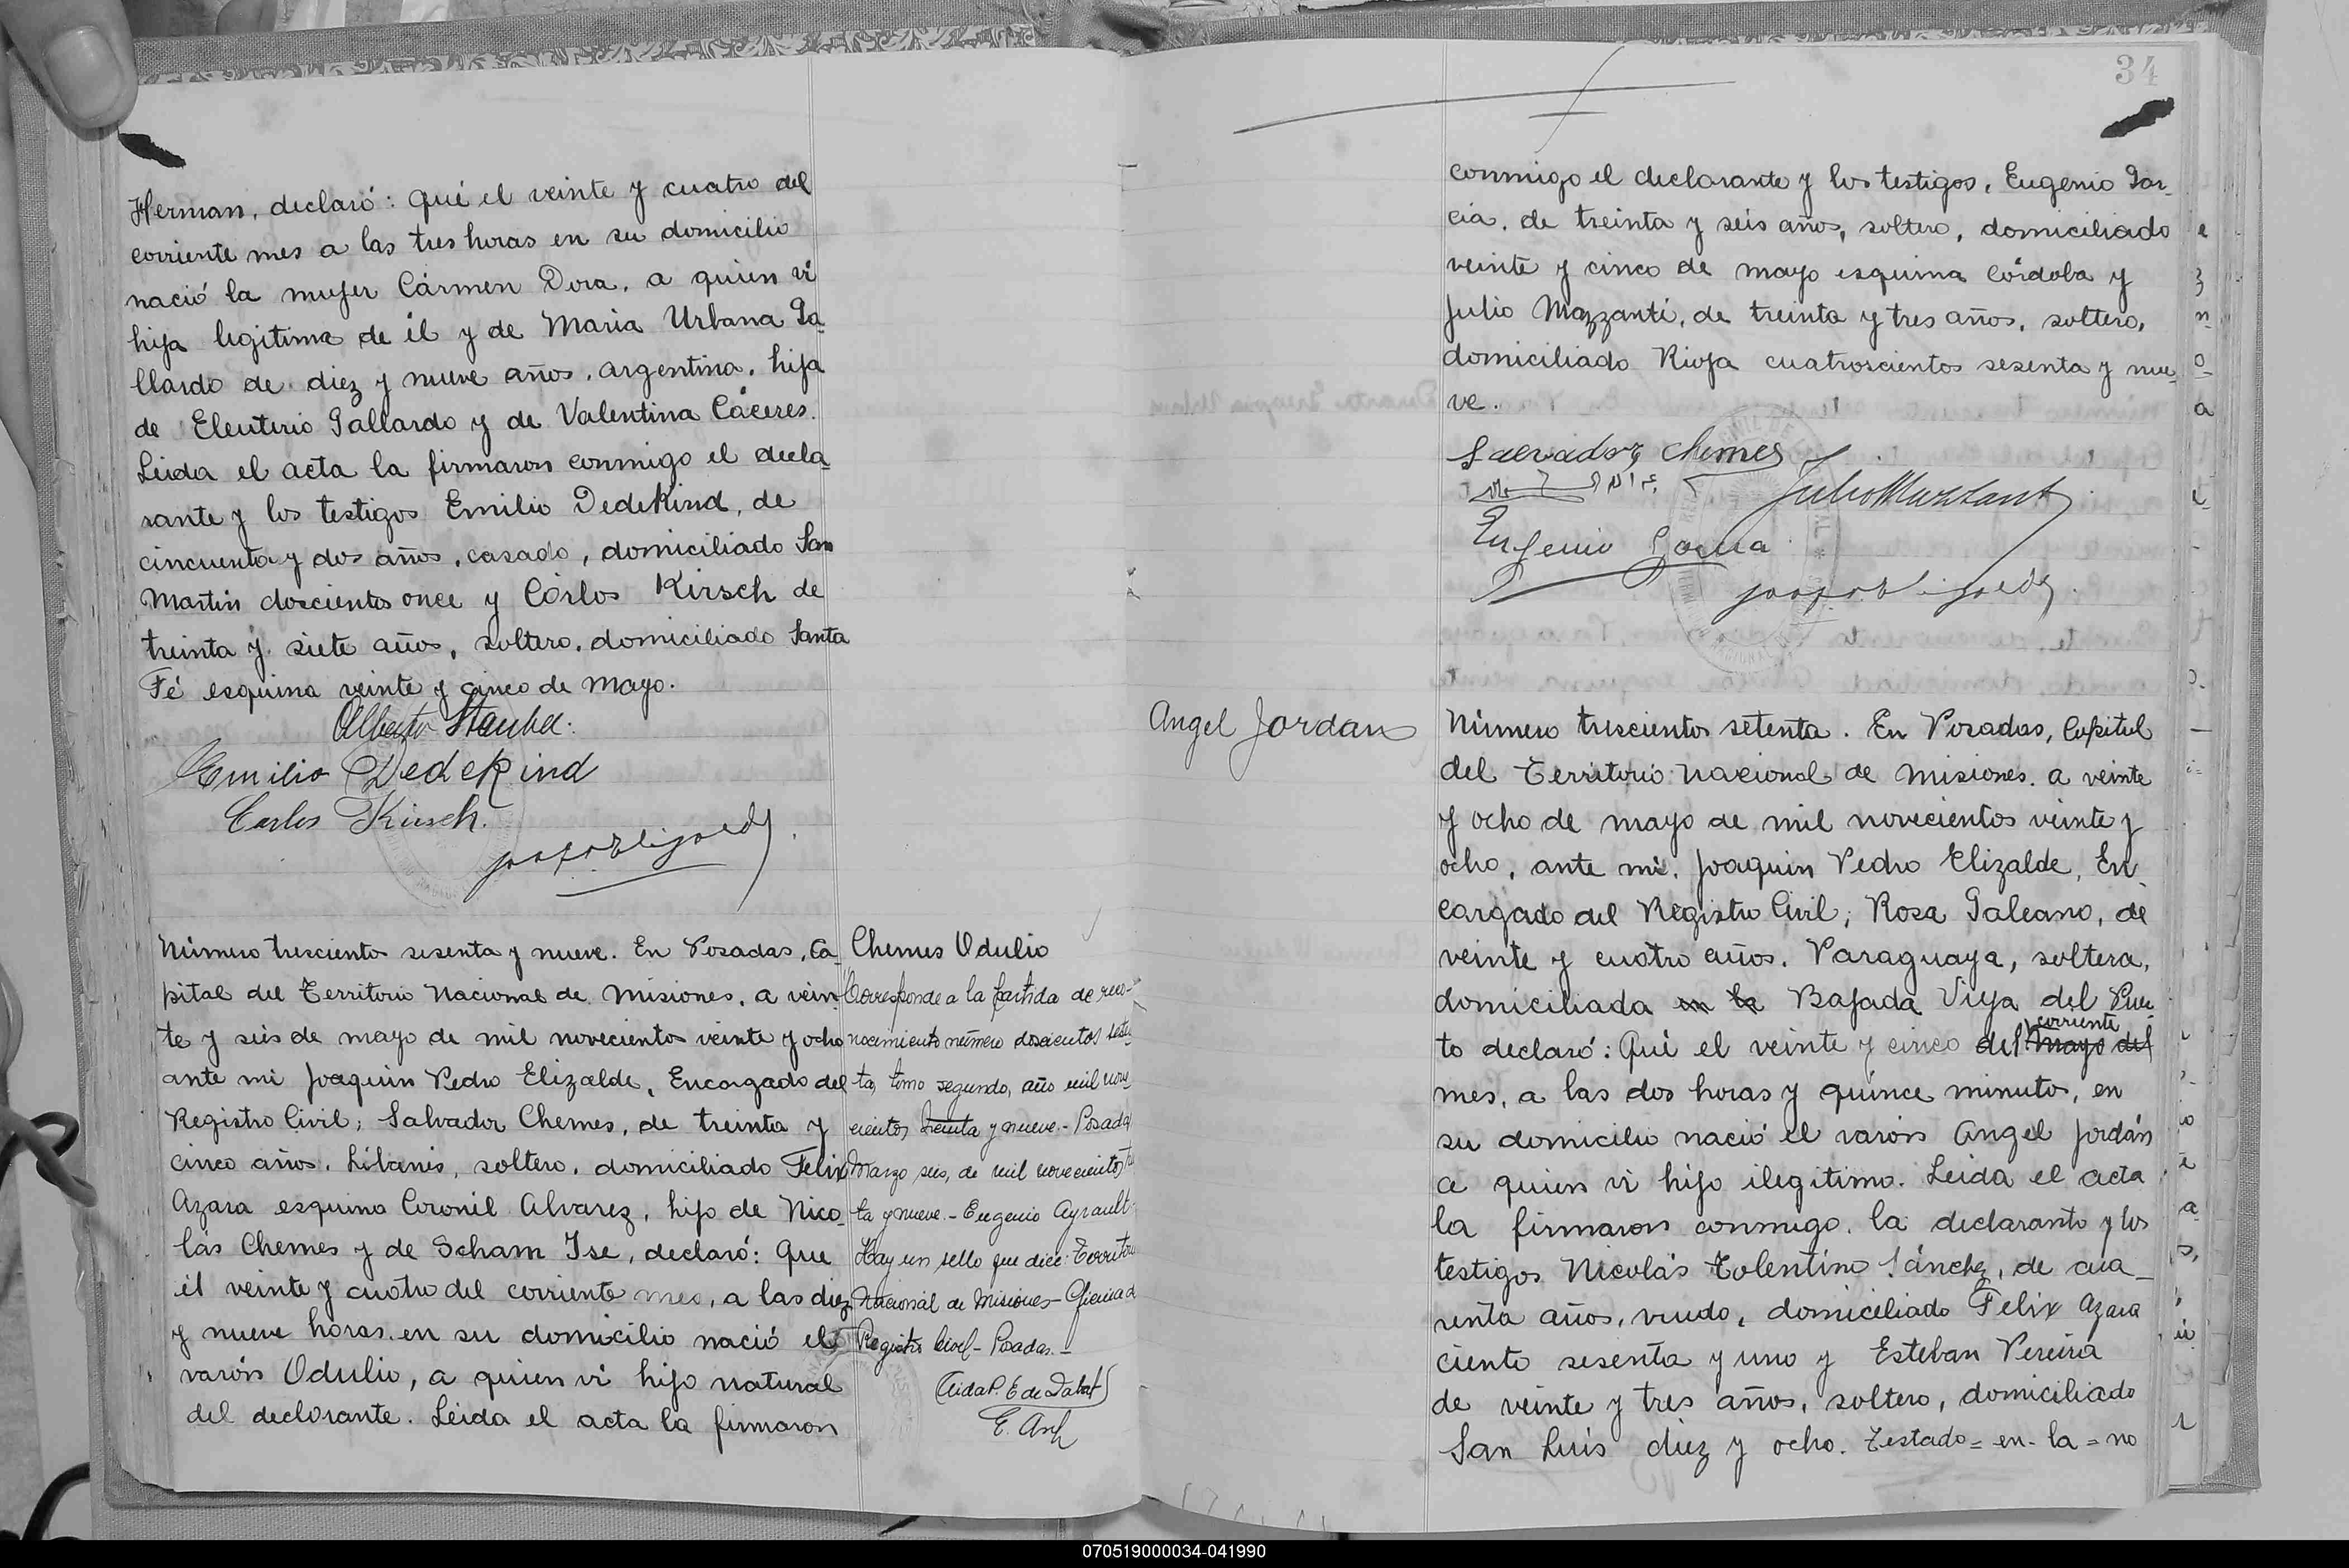 Herman, declaró: Qué el veinte y cuatro del
corriente mes a las tres horas en su domicilio
nació la mujer Cármen Dora, a quien ví
hija legitima de él y de Maria Urbana Ga
llardo de diez y nueve años, argentina, hija
de Eleuterio Gallardo y de Valentina Cáceres.
Leida el acta la firmaron conmigo el decla
rante y los testigos Emilio Dedekind, de
cincuenta y dos años, casado, domiciliado San
Martín doscientos once y Cárlos Kirsch de
treinta y siete años, soltero, domiciliado Santa
Fé esquina veinte y cinco de mayo.
Alberto Stauber.
Emilio Dedekind
Carlos Kirsch.
Número tresciento sesenta y nueve. En Posadas, Ca
pital del Territorio Nacional de Misiones, a vein
te y seis de mayo de mil novecientos veinte y ocho
ante mi Joaquin Pedro Elizalde, Encargado del
Registro Civil; Salvador Chemes, de treinta y
cinco años, Libanés, soltero, domiciliado Felix
Azara esquina Coronel Alvarez, hijo de Nico
lás Chemes y de Scham Ise, declaró: Que
él veinte y cuatro del corriente mes, a las diez
y nueve horas en su domicilio nació el
varón Odulio, a quien ví hijo natural
del declorante. Leida el acta la firmaron
Chemes Odulio
Corresponde a la partida de reco-
nocimiento número doscientos seten
ta, tomo segundo, año mil nove
cientos treinta y nueve.- Posadas
Marzo seis, de mil novecientos
ta y nueve.- Eugenio Ayrault
Hay un sello que dice: Territorio
Nacional de Misiones- Oficina d
Registro Civil- Posadas.-
34
conmigo el declarante y los testigos, Eugenio Gar-
cia, de treinta y seis años, soltero, domiciliado
veinte y cinco de mayo esquina Córdoba y
Julio Mazzanti, de treinta y tres años, soltero,
domiciliado Rioja cuatroscientos sesenta y nue
ve.
Salvador Chemes
Julio Mazzanti
Eugenio Garcia
Angel Jordan
Número trescientos setenta. En Posadas, Capital
del Territorio Nacional de Misiones, a veinte
y ocho de mayo de mil novecientos veinte y
ocho, ante mi, Joaquin Pedro Elizalde, En
cargado del Registro Civil; Rosa Galeano, de
veinte y cuatro años, Paraguaya, soltera,
domiciliada en la Bajada Vieja del Puer
to declaró: Qué el veinte y cinco del corriente mayo del
mes, a las dos horas y quince minuto, en
su domicilio nació el varón Angel Jordán
a quien ví hijo ilegitimo. Leida el acta
la firmaron conmigo, la declarante y los
testigos Nicolás Tolentino Sánchez, de cua_
renta años, viudo, domiciliado Felix Azara
ciento sesenta y uno y Esteban Pereira
de veinte y tres años, soltero, domiciliado
San Luis diez y ocho. Testado = en - la = no
070519000034-041990